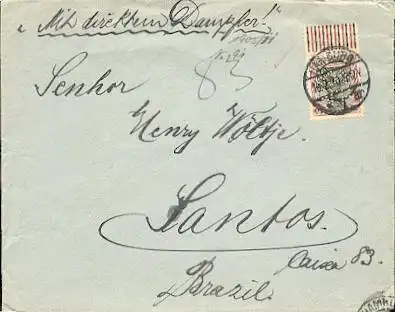 "Mit direktem Dampfer!"
83
Senhor
Henry Wöltje
Santos.
Caixa 83.
Brazil.